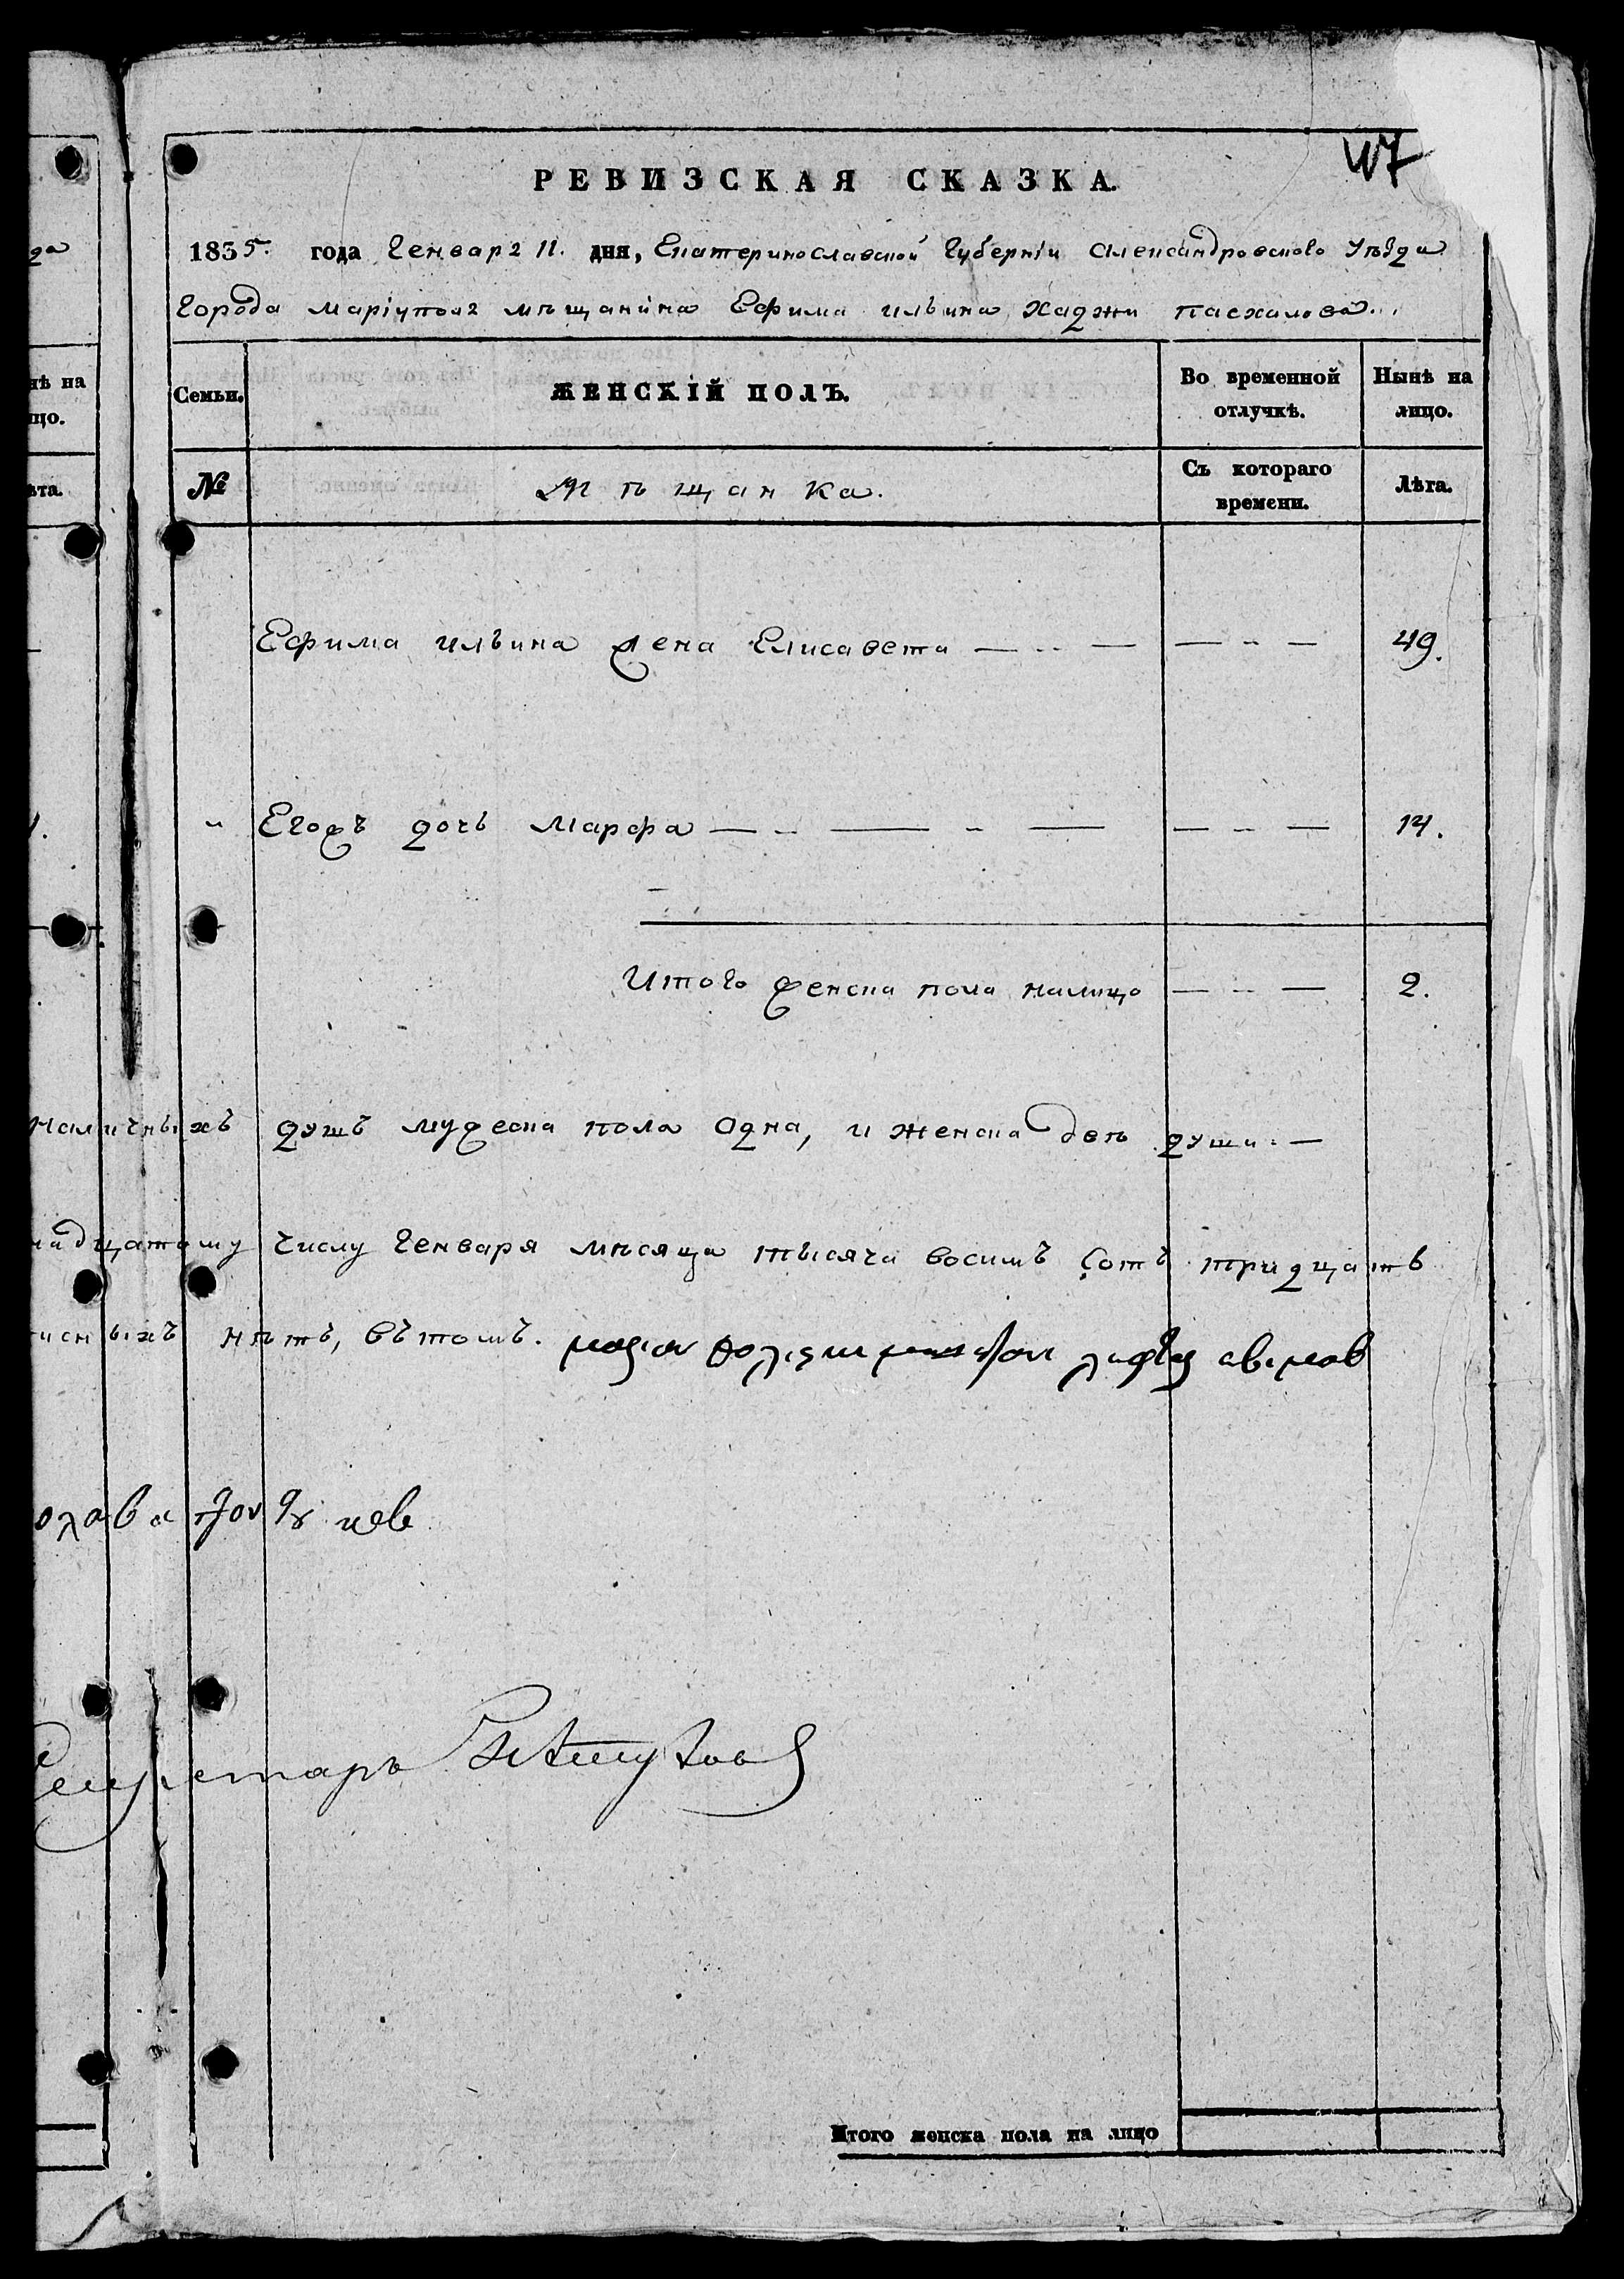 РЕВИЗСКАЯ СКАЗКА.
1835. года Генваря 11. дня, Екатеринославской Губерніи Александровского Уѣзда
города маріуполя мѣщанина Ефима ильина хаджи пасхалова..
Семьи. ЖЕНСКІЙ ПОЛЪ. Во временной отлучкѣ. Нынѣ на лицо.
№ Мѣщанка. Съ котораго времени. Лѣта.
Ефима ильина жена Елисавета — .. — — .. — 49.
„ Егожъ дочь Марфа — .. — .. — — .. — 14.
Итого женска пола налицо — .. — 2.
Наличныхъ душъ мужеска пола одна, и женска двѣ души. —
надцатому числу Генваря мѣсяца тысяча восимъ сотъ тридцать
нѣтъ, вътомъ.
Секретарь
Итого женска пола на лицо
нѣ на
цо.
ѣта.